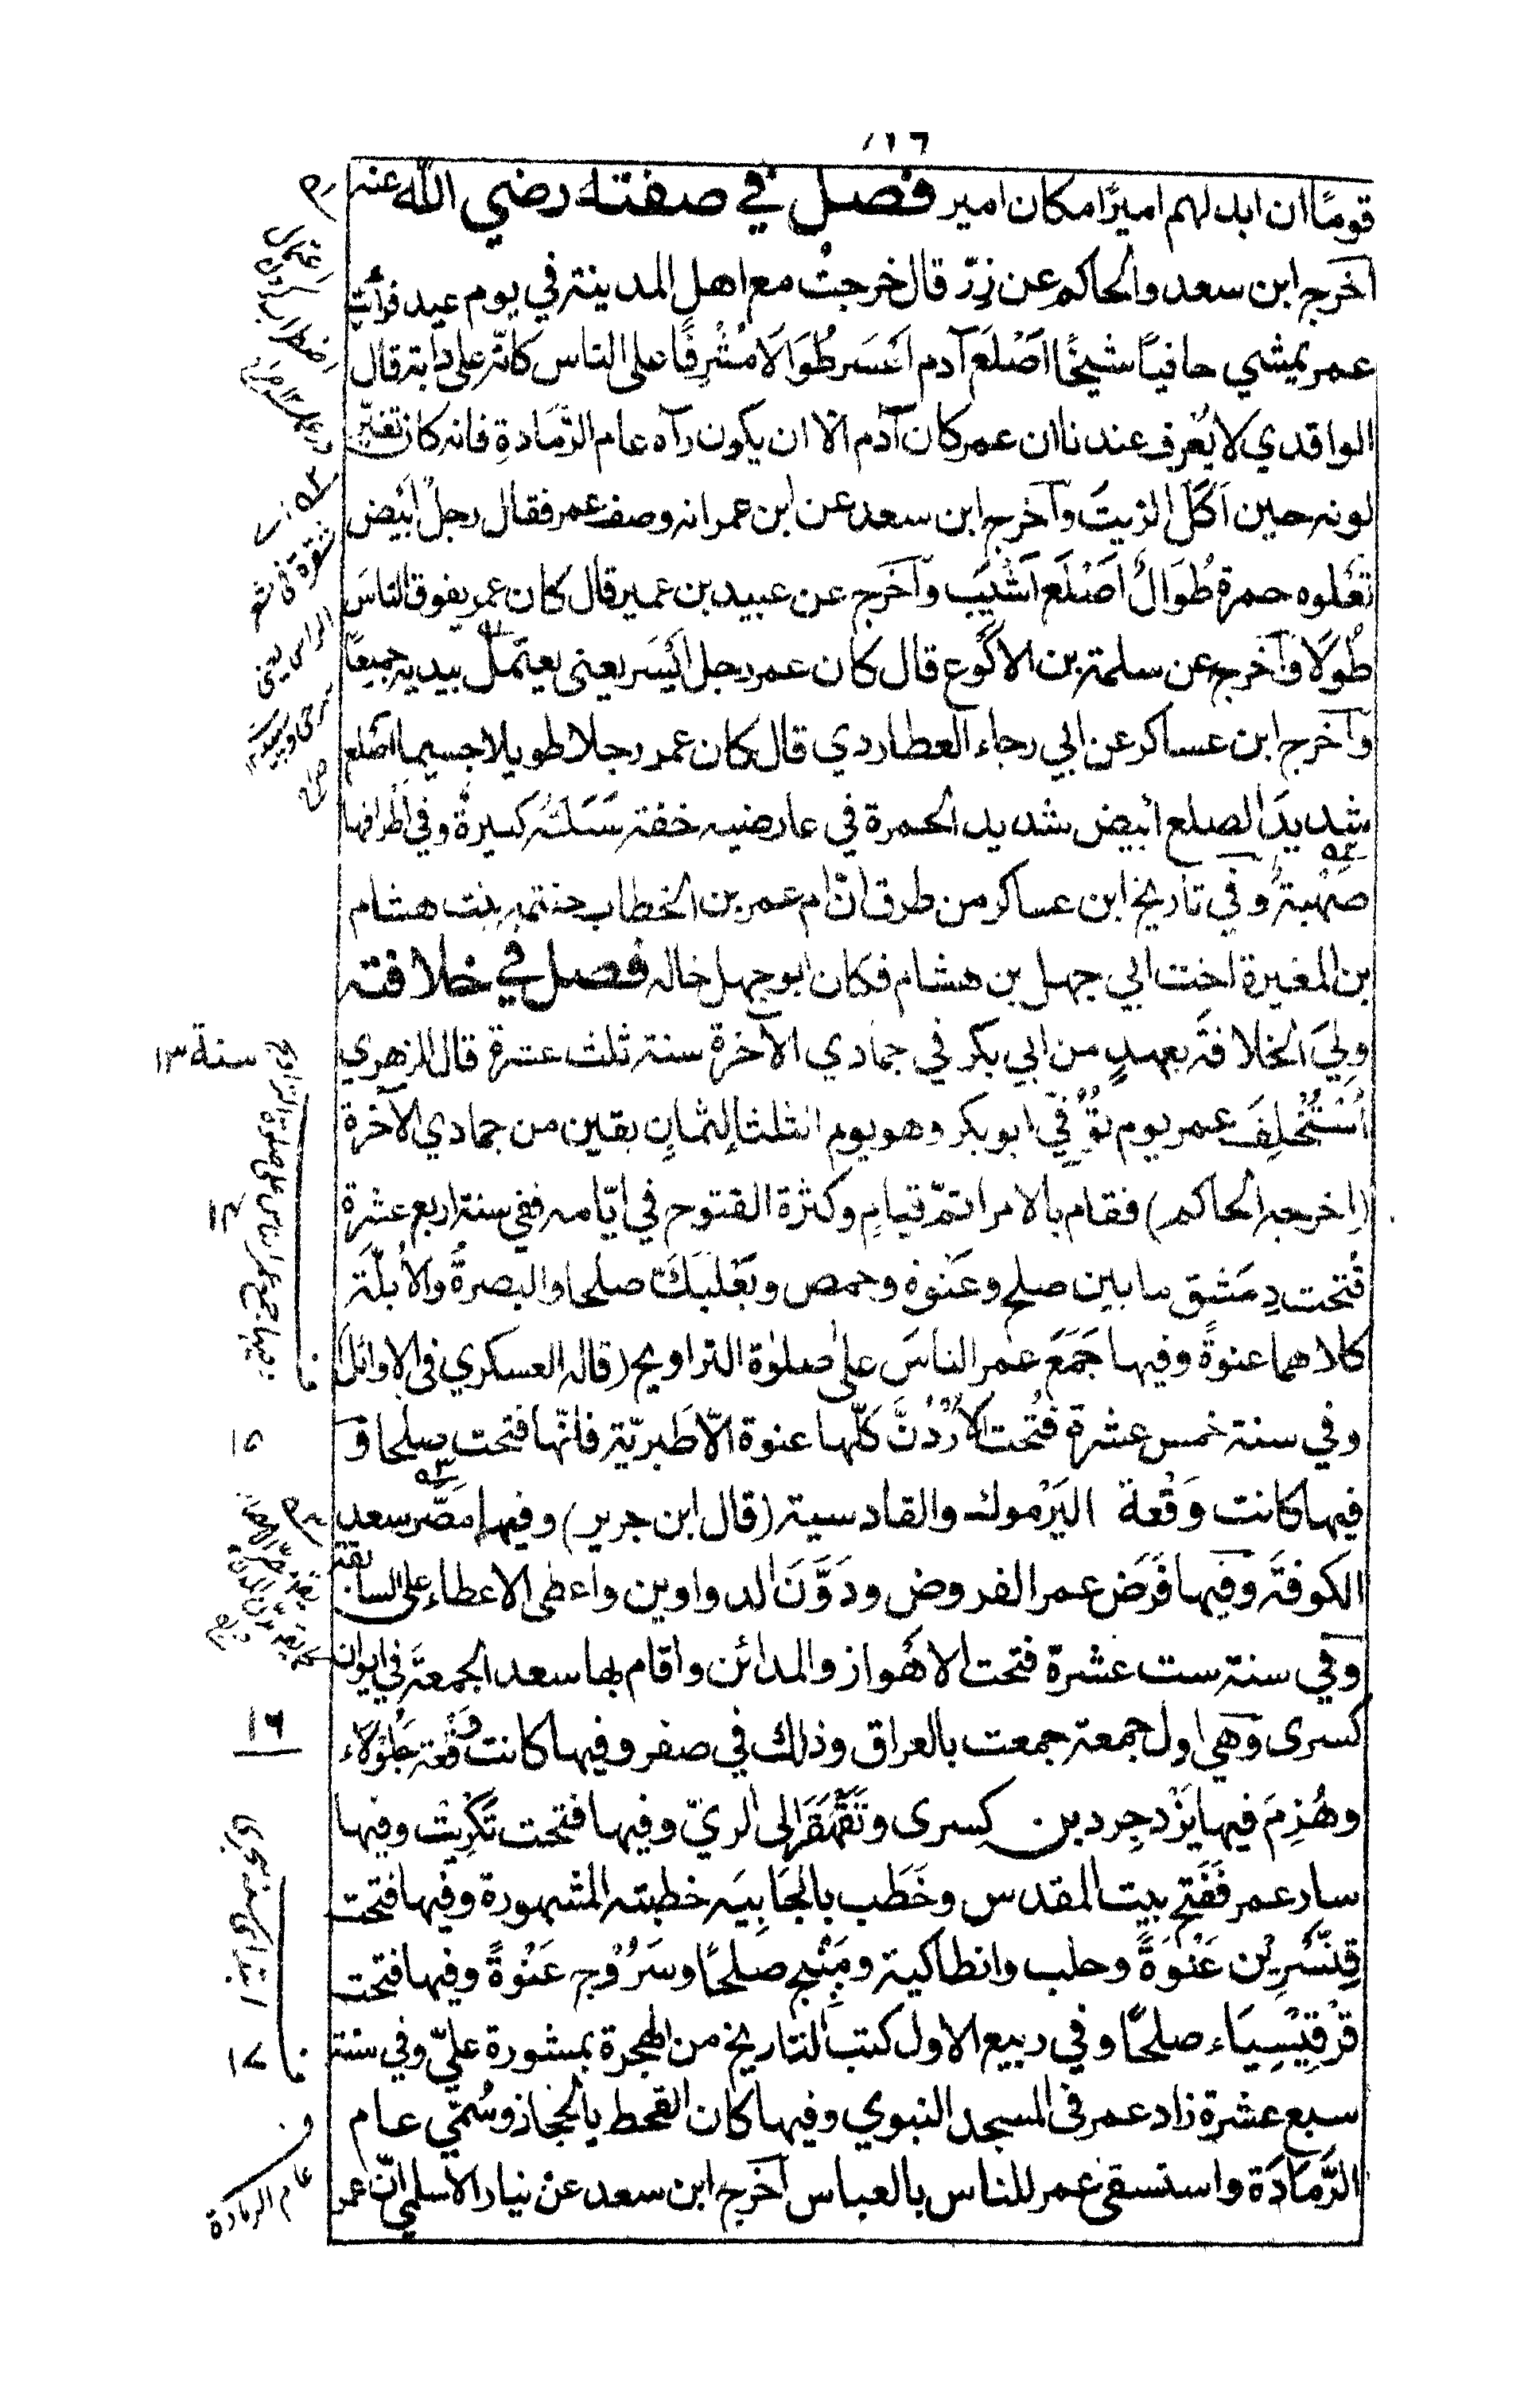 ١١٦
قومًا ان ابدلهم اميرًا مكان امير فصل في صفته رضي الله عنه
اخرج ابن سعد والحاكم عن زِرّ قال خرجتُ مع اهل المدينة في يوم عيد فرأيت
عمر يمشي حافيًا شيخًا اَصْلَعَ آدم اَعْسَر طُوَالًا مُشْرِفًا على الناس كانّه على دابة قال
الواقدي لا يُعرف عندنا ان عمر كان آدم الّا ان يكون رآه عام الرَّمَادةِ فانه كان تغيّر
لونه حين اَكَلَ الزيتَ وآخرج ابن سعد عن ابن عمر انه وصف عمر فقال رجلٌ اَبْيَض
تَعْلوه حمرة طُوَالٌ اَصْلَع اَشْيَب وآخرج عن عبيد بن عمير قال كان عمر يفوق الناسَ
طُولًا وآخرج عن سلمة بن الاكْوَع قال كان عمر رجلا اَيْسَر يعنى يعتمل بيديه جميعًا
وآخرج ابن عساكر عن ابي رجاء العطاردي قال كان عمر رجلا طويلا جسيما اصْلع
شديدَ الصلع ابيض شديد الحمرة في عارضيه خفة سَبَلَتُه كبيرةٌ وفي اطرافها
صُهْبةٌ وفي تاريخ ابن عساكر من طرق انّ ام عمر بن الخطاب حنتمه بنت هشام
بن المغيرة اخت ابي جهل بن هشام فكان ابو جهل خاله فصل في خلافته
ولِيَ الخلافَة بعهدٍ من ابي بكر في جمادي الآخرة سنة ثلث عشرة قال الزهري
اُسْتُخْلِفَ عمر يوم تُوُفِّيَ ابو بكر وهو يوم الثلثا لِثمانٍ بقين من جمادي الآخرة
(اخرجه الحاكم) فقام بالامر اتمّ قيامٍ وكثرة الفتوح في ايّامه ففي سنة اربع عشرة
فُتحت دِمَشْق ما بين صلح وعَنْوة وحمص وبَعْلَبَكّ صلحا والبصرةُ والاُبلّة
كلاهما عنوةً وفيها جَمَعَ عمر الناسَ على صلوٰة التراويح (قاله العسكري فى الاوائل)
وفي سنة خمس عشرة فُتحت الاُرْدُنّ كلّها عنوة الّا طَبريّة فانّها فتحت صلحا و
فيها كانت وَقْعة اليَرْموك والقادسية (قال ابن جرير) وفيها مَصَّر سعد
الكوفةَ وفيها فَرَض عمر الفروض ودَوَّنَ الدواوين واعطى الاعطاء على السابقة
وفي سنة ست عشرة فتحت الاَهْواز والمدائن واقام بها سعد الجمعةَ في ايوان
كسرى وهي اول جمعة جمعت بالعراق وذلك في صفر وفيها كانت وَقْعة جَلُوْلَاء
وهُزِمَ فيها يَزْدجِرد بن كِسرى وتَقَهْقَرَ الى الريّ وفيها فتحت تَكْرِيْت وفيها
سار عمر فَفَتح بيت المقدس وخَطَب بالجَابِيَه خطبته المشهورة وفيها فتحت
قِنَّسْرِيْن عَنْوَةً وحلب وانطاكية ومَنْبِج صلحًا وسَرُوْج عَنْوةً وفيها فتحت
قَرْقِيْسِيَاء صلحًا وفي ربيع الاول كتب التاريخ من الهجرة بمشورة عليّ وفي سنة
سبع عشرة زاد عمر فى المسجد النبوي وفيها كان القحط بالحجاز وسُمّي عام
الرَّمَادَة واستسقى عمر للناس بالعباس آخرج ابن سعد عن نيار الاسلمي انّ عمر
سنة ١٣
١٤
١٥
١٦
ابتداي سنه هجري
١٧
عام الرمادة